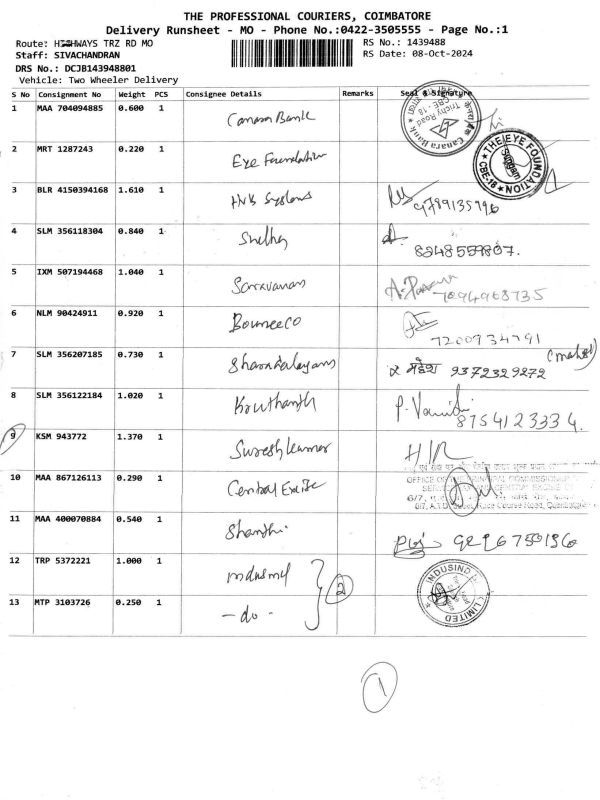 THE PROFESSIONAL COURIERS, COIMBATORE
Delivery Runsheet - MO - Phone No.:0422-3505555 - Page No.:1
Route: HIGHWAYS TRZ RD MO RS No.: 1439488
Staff: SIVACHANDRAN RS Date: 08-Oct-2024
DRS No.: DCJB143948801
Vehicle: Two Wheeler Delivery
S No Consignment No Weight PCS Consignee Details Remarks Seal & Signature
1 MAA 704094885 0.600 1 Canara Bank Canara Bank Trichy Road CBE - 18
2 MRT 1287243 0.220 1 Eye Foundation THE EYE FOUNDATION CBE-18
3 BLR 4150394168 1.610 1 Systems 9789135796
4 SLM 356118304 0.840 1 8248559807.
5 IXM 507194468 1.040 1 Saravanan 7094968735
6 NLM 90424911 0.920 1 Bouneeco 7200934791
7 SLM 356207185 0.730 1 महेश 9372329272 (mahesh)
8 SLM 356122184 1.020 1 8754123334.
9 KSM 943772 1.370 1 Sureshkumar H/R
10 MAA 867126113 0.290 1 Central Excise
6/7, A.T.D. Street, Race Course Road, Coimbatore
11 MAA 400070884 0.540 1 Shanthi.
12 TRP 5372221 1.000 1 INDUSIND LIMITED
13 MTP 3103726 0.250 1 - do - 2
1